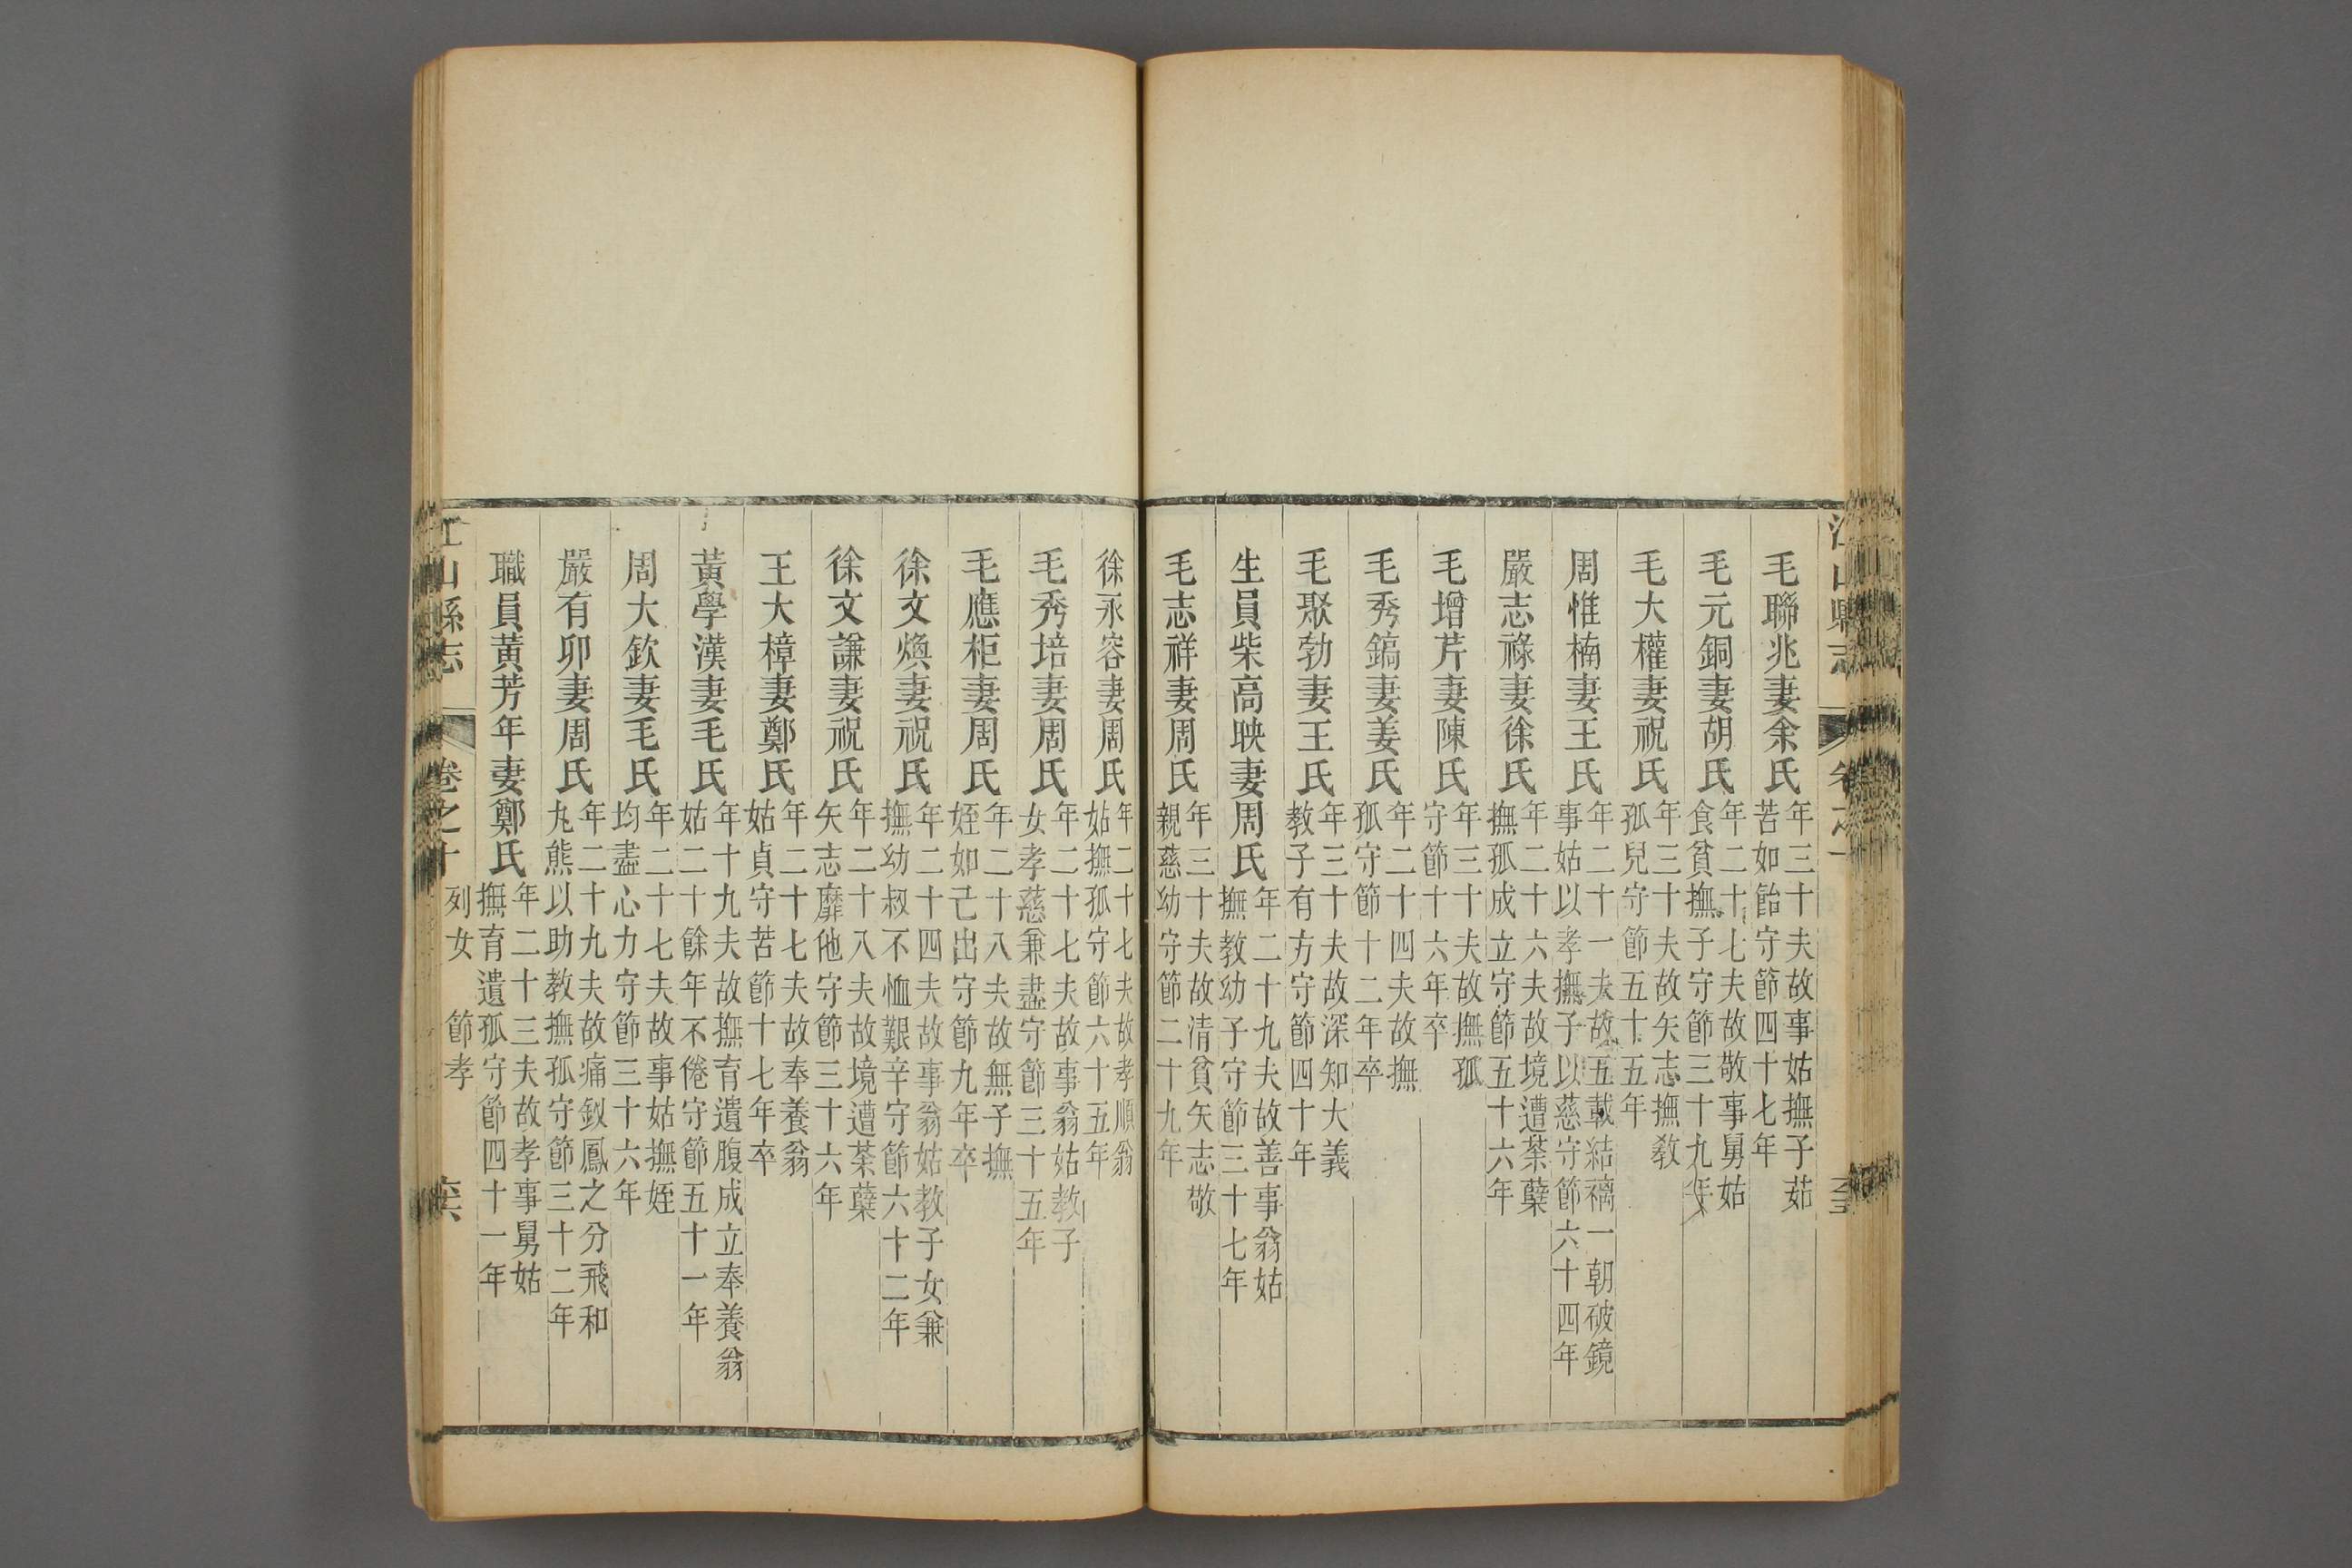 毛聯兆妻余氏
年三十夫故事姑撫子茹
苦如飴守節四十七年
毛元銅妻胡氏
年二十七夫故敬事舅姑
食貧撫子守節三十九年
毛大權妻祝氏
年三十夫故矢志撫教
孤兒守節五十五年
周惟楠妻王氏
年二十一夫故五載結褵一朝破鏡
事姑以孝撫子以慈守節六十四年
嚴志祿妻徐氏
年二十六夫故境遭荼蘖
撫孤成立守節五十六年
毛增芹妻陳氏
年三十夫故撫孤
守節十六年卒
毛秀鎬妻姜氏
年二十四夫故撫
孤守節十二年卒
毛聚勃妻王氏
年三十夫故深知大義
教子有方守節四十年
生員柴高映妻周氏
年二十九夫故善事翁姑
撫教幼子守節三十七年
毛志祥妻周氏
年三十夫故清貧矢志敬
親慈幼守節二十九年
徐永容妻周氏
年二十七夫故孝順翁
姑撫孤守節六十五年
毛秀培妻周氏
年二十七夫故事翁姑教子
女孝慈兼盡守節三十五年
毛應柜妻周氏
年二十八夫故無子撫
姪如己出守節九年卒
徐文煥妻祝氏
年二十四夫故事翁姑教子女兼
撫幼叔不恤艱辛守節六十二年
徐文謙妻祝氏
年二十八夫故境遭荼蘖
矢志靡他守節三十六年
王大樟妻鄭氏
年二十七夫故奉養翁
姑貞守苦節十七年卒
黃學漢妻毛氏
年十九夫故撫育遺腹成立奉養翁
姑二十餘年不倦守節五十一年
周大欽妻毛氏
年二十七夫故事姑撫姪
均盡心力守節三十六年
嚴有卯妻周氏
年二十九夫故痛釵鳳之分飛和
丸熊以助教撫孤守節三十二年
職員黃芳年妻鄭氏
年二十三夫故孝事舅姑
撫育遺孤守節四十一年
江山縣志 卷之十 列女 節孝